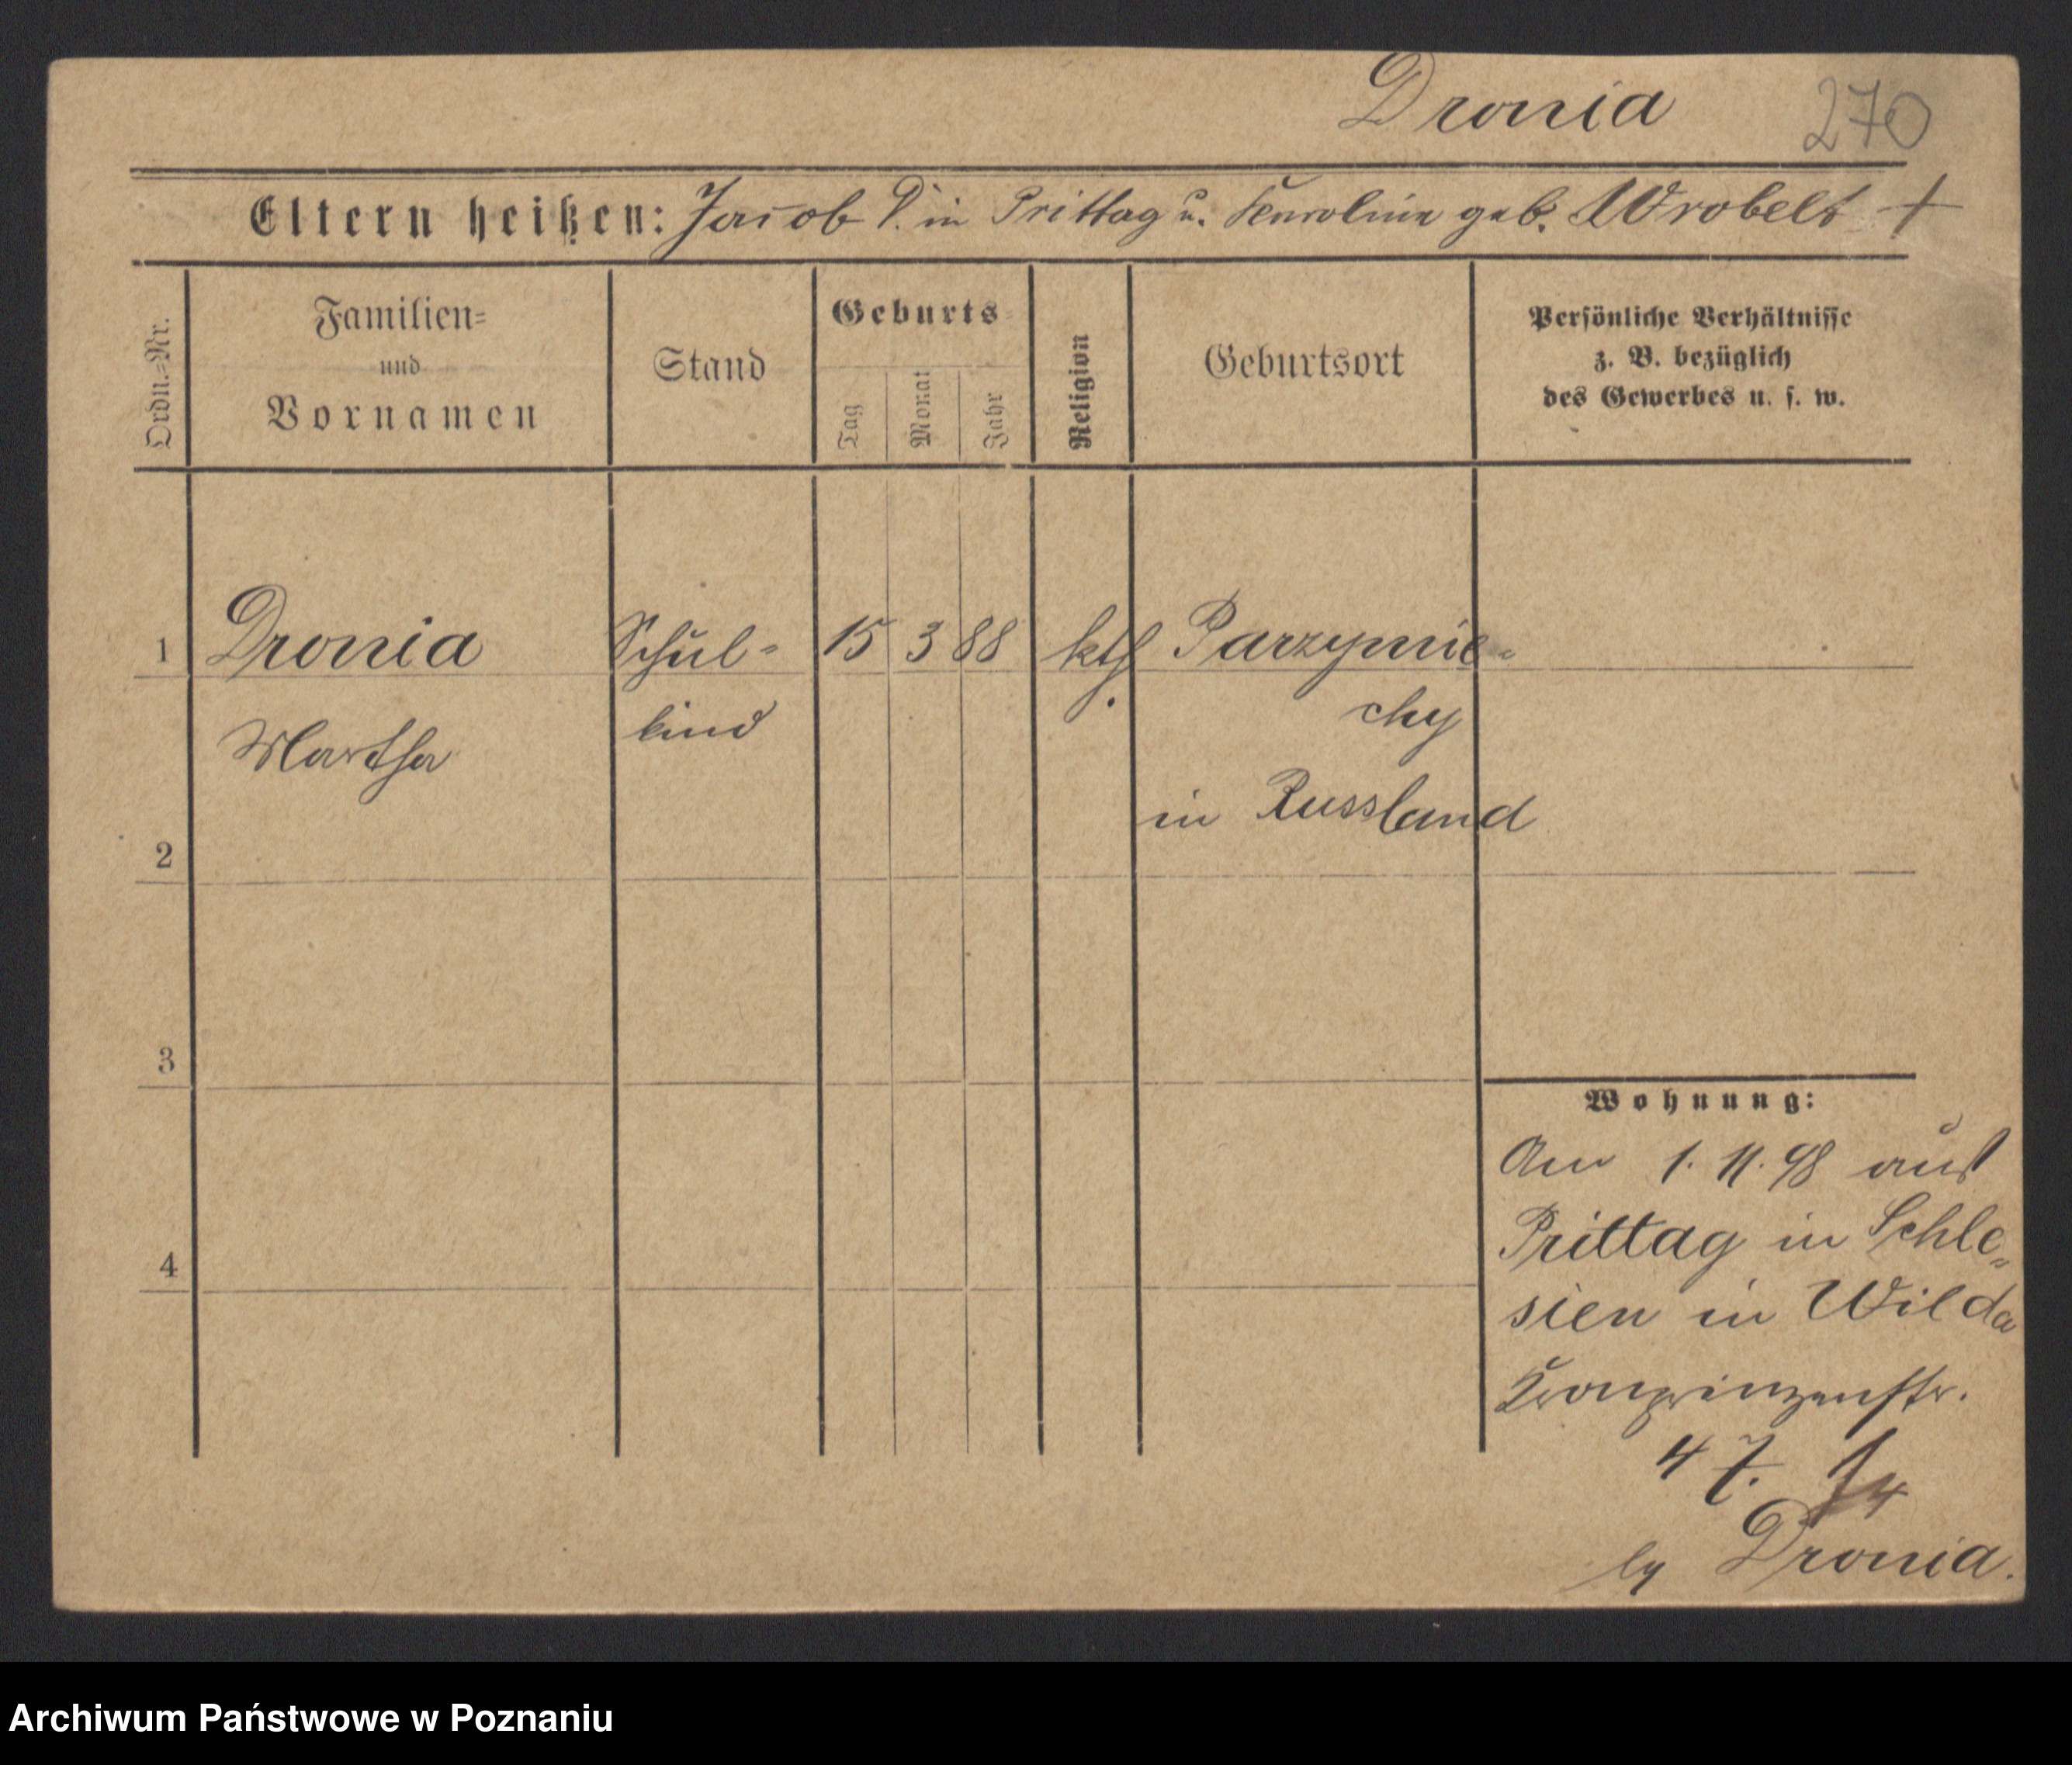 Dronia 270
Eltern heißen: Jacob D. in Prittag u. Karoline geb. Wrobel +
Ordn.=Nr.
Familien=
und
Vornamen
Stand
Geburts
Tag
Monat
Jahr
Religion
Geburtsort
Persönliche Verhältnisse
z. B. bezüglich
des Gewerbes u. s. w.
1 Dronia Schul- 15 3 88 kth. Parzymie-
Martha kind chy
in Russland
2
3
Wohnung:
Am 1. 11. 98 aus
Prittag in Schle-
sien in Wilda
4
Kronprinzenstr.
47.
Dronia.
Archiwum Państwowe w Poznaniu